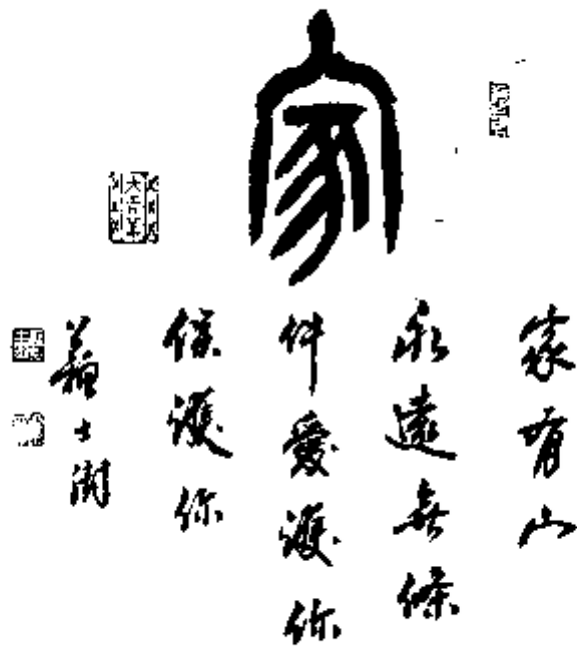 家
家有山
永遠無條
件愛護你
保護你